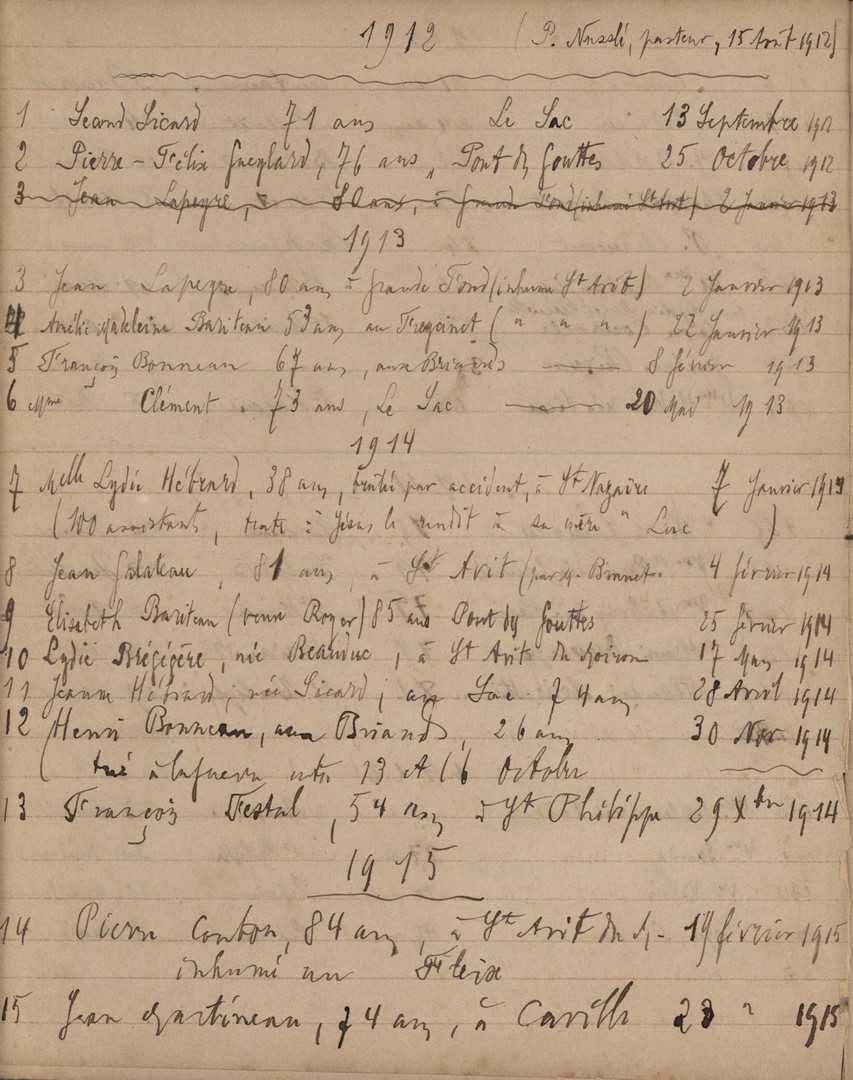 1912 (P. Nusslé, pasteur, 15 Août 1912)
1 Séand Sicard 71 ans Le Sac 13 Septembre 1912
2 Pierre-Félix Gueylard, 76 ans, Pont des Gouttes 25 Octobre 1912
3 Jean Lapeyre, 80 ans, à Grande Fond (inhumé St Avit) 2 Janvier 1913
1913
3 Jean Lapeyre, 80 ans à Grande Fond (inhumé St Avit) 2 Janvier 1913
4 Amélie Madeleine Bariteau 53 ans au Freycinet ( " " " ) 22 Janvier 1913
5 François Bonneau 67 ans, aux Briands 8 février 1913
6 Mme Clément. 73 ans, Le Sac 20 Mai 1913
1914
7 Melle Lydie Hébrard, 38 ans, brûlée par accident, à St Nazaire 7 Janvier 1914
(100 assistants, texte : "Jésus le rendit à sa mère" Luc )
8 Jean Galateau, 81 ans, à St Avit (par M. Brunet. 4 février 1914
9 Elisabeth Bariteau (veuve Royer) 85 ans Pont des Gouttes 25 février 1914
10 Lydie Brégégère, née Beauduc, à St Avit du Moiron 17 Mars 1914
11 Jeanne Hébrard, née Sicard, au Sac 74 ans 28 Avril 1914
12 (Henri Bonneau, aux Briands, 26 ans 30 Nov 1914
tué à la guerre entre 13 et 16 Octobre
13 François Festal, 54 ans, à St Philippe 29 Xbre 1914
1915
14 Pierre Conbon, 84 ans, à St Avit du M.- 19 février 1915
inhumé au Fleix
15 Jean Martineau, 74 ans, à Caville 23 " 1915